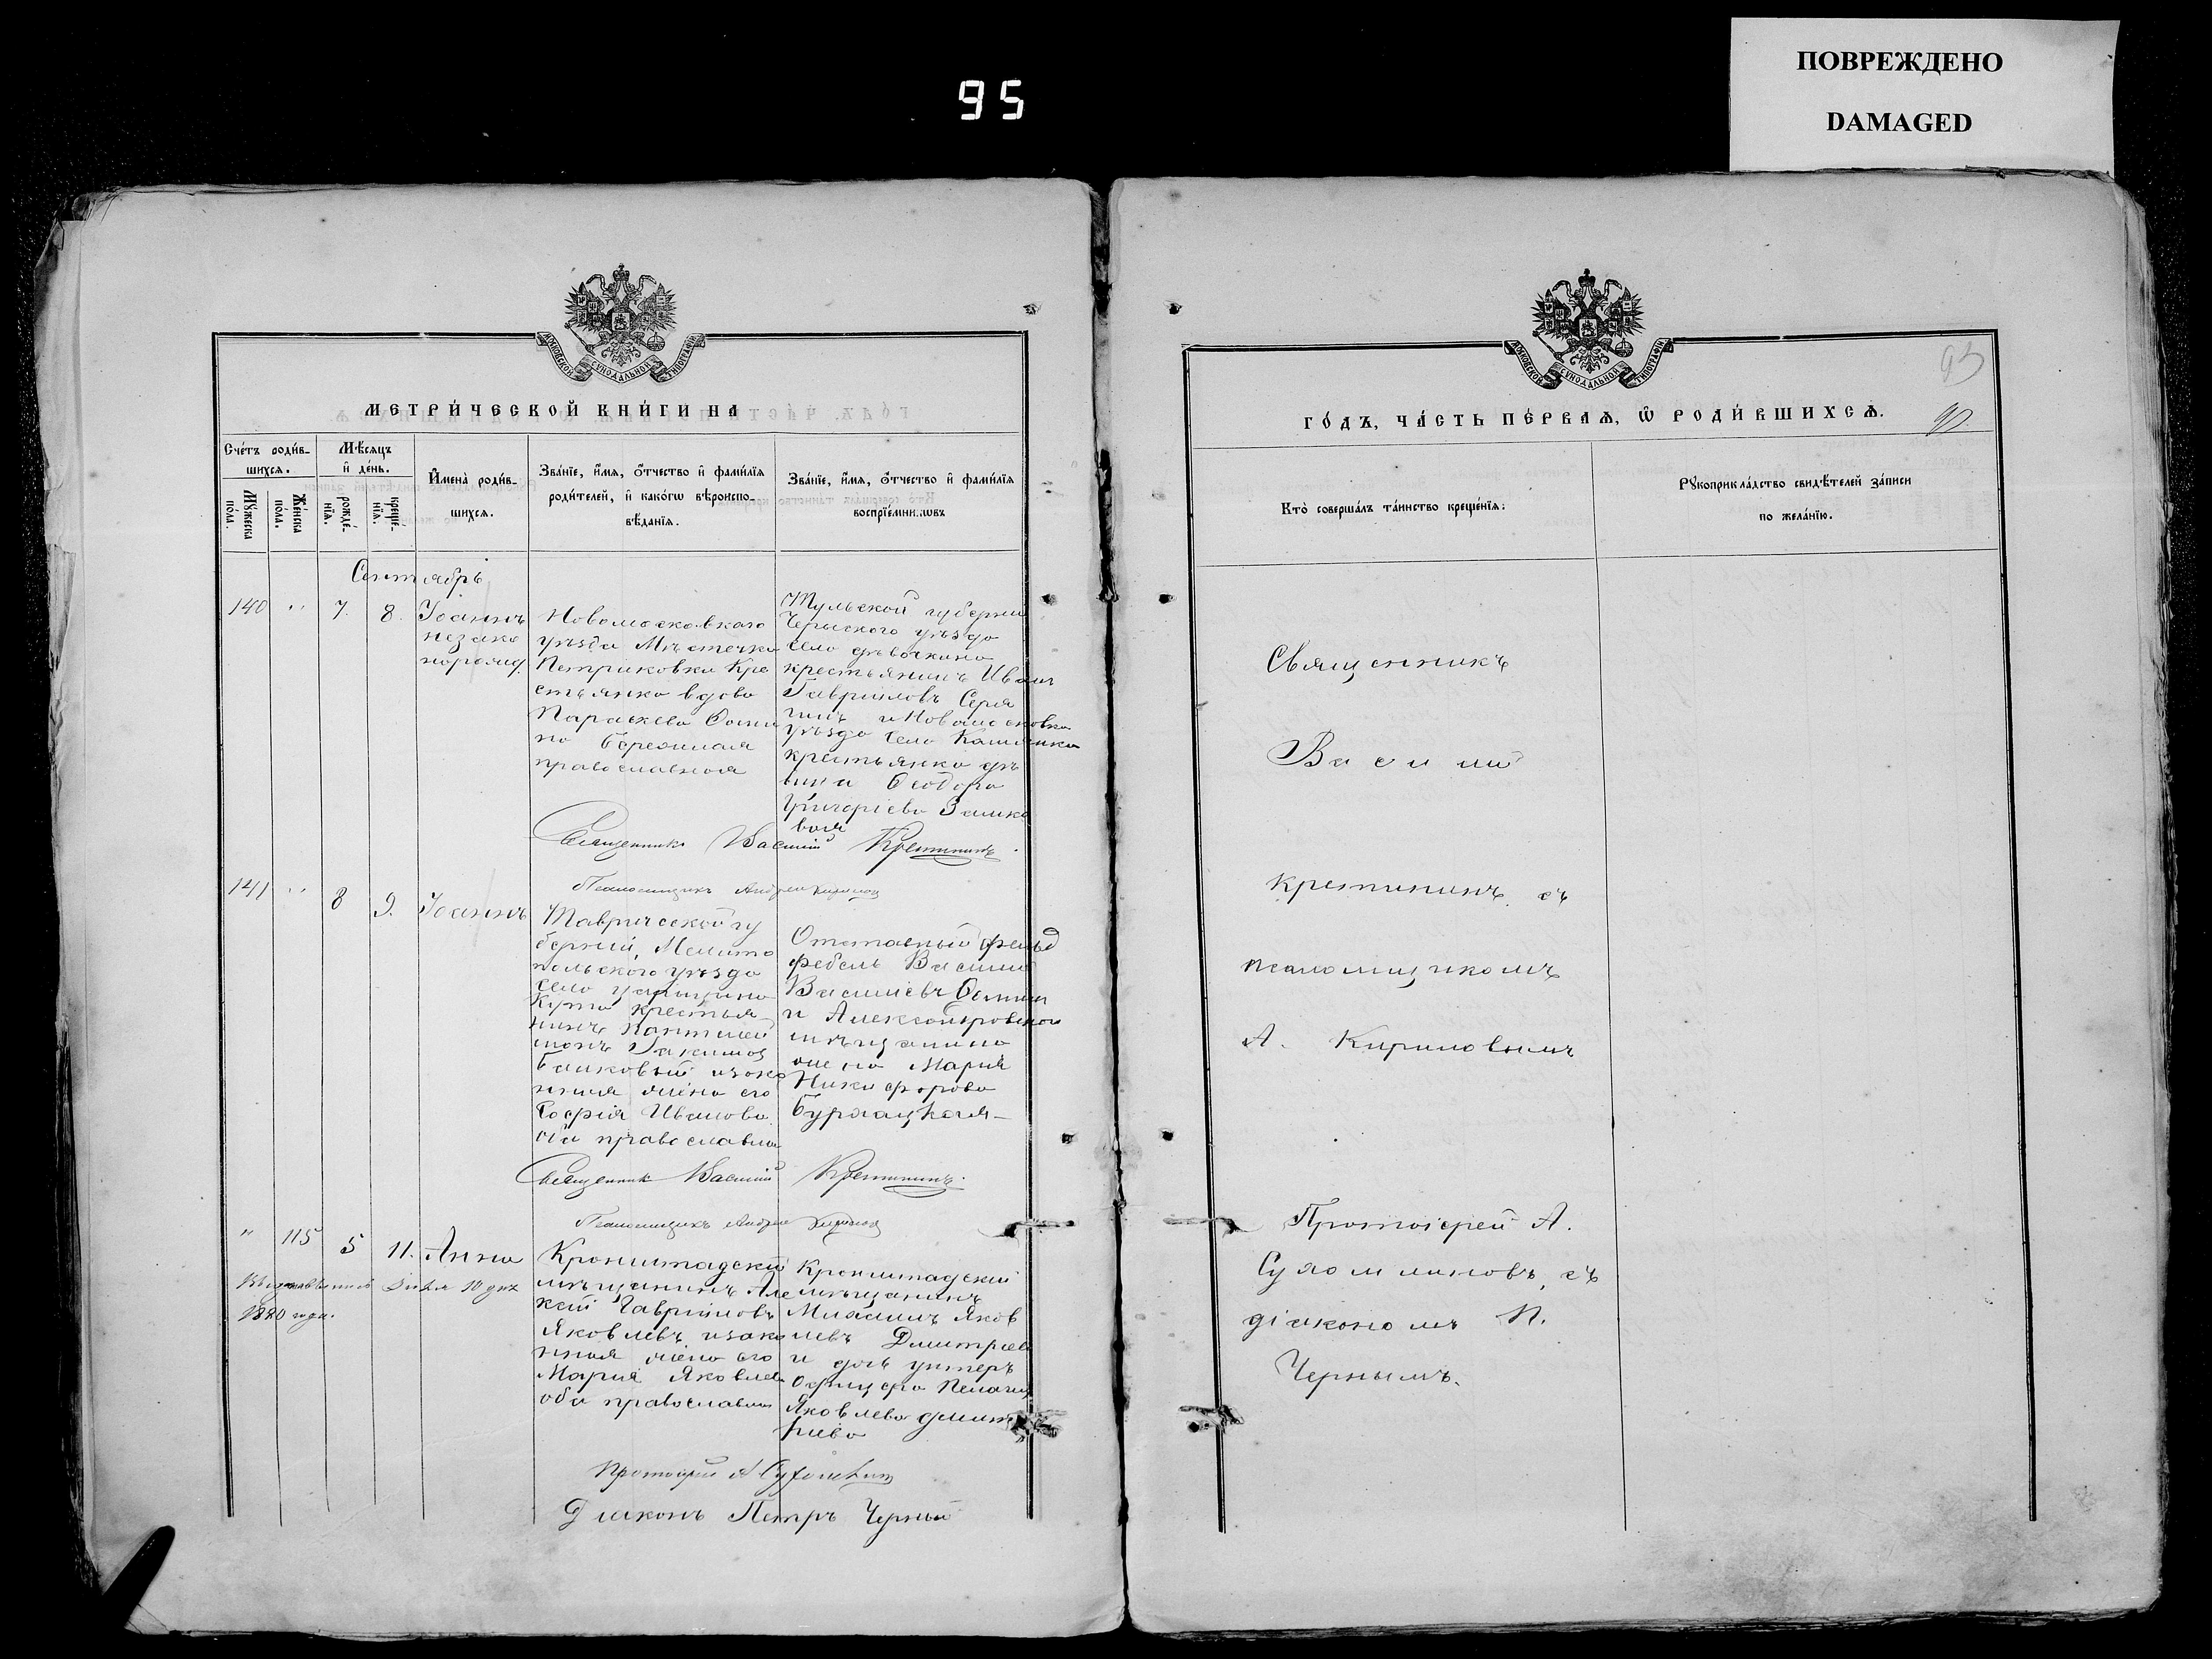 95
ПОВРЕЖДЕНО
DAMAGED
МОСКОВСКОЙ СѴНОДАЛЬНОЙ ТИПОГРАФІИ
МЕТРИ́ЧЕСКОЙ КНИ́ГИ НА
Сче́тъ роди́в-
шихсѧ.
Мѣ́сѧцъ
и҆ де́нь.
Мꙋ́жеска
по́ла.
Же́нска
по́ла.
рожде́-
нїѧ.
креще́-
нїѧ.
И҆мена̀ роди́в-
шихсѧ.
Зва́нїе, и҆́мѧ, ѻ҆́тчество и҆ фами́лїѧ
роди́телей, и҆ како́гѡ вѣроиспо-
вѣ́данїѧ.
Зва́нїе, и҆́мѧ, ѻ҆́тчество и҆ фами́лїѧ
воспрїе́мникѡвъ
Сентябрь
140 " 7. 8. Іоаннъ
незако
норожд.
Новомосковскаго
уѣзда Мѣстечка
Петриковки Кре
стьянка вдова
Параскева Фоми
на Бережная
православная
Тульской губерніи
Черньского уѣзда
село
крестьянинъ Иванъ
Гавриловъ Серя
гинъ и Новомосковск
уѣзда села Каменки
крестьянка дѣ
вица Феодора
Григоріева Замко
вая
Священникъ Василій Кретининъ
Псаломщикъ Андрей Кириловъ
141 " 8 9. Іоаннъ
Таврической гу
берніи, Мелито
польского уѣзда
село Царицина
Кута крестья
нинъ Пантелей
монъ Іакимов
Балковый и зако
нная жена его
Софія Иванова
оба православны
Отставный фельд
фебель Василий
Васильевъ
и Александровской
мѣщанина
жена Марія
Никифорова
Буржацкая
Священникъ Василій Кретининъ.
Псаломщикъ Андрей Кириловъ
" 115 5 11. Анна
1880 года.
Кронштадскій
мѣщанинъ Але
ксій Гавриловъ
Яковлевъ и зако
нная жена его
Марія Яковлева
оба православны
Кронштадскій
мѣщанинъ
Михаилъ Яков
левъ Дмитріев
и дочь унтеръ
офицера Пелагия
Яковлева Дмит
ріева
Протоіерей А Сухомлинов
Діаконъ Петръ Черный
МОСКОВСКОЙ СѴНОДАЛЬНОЙ ТИПОГРАФІИ
93
90
ГО́ДЪ, ЧА́СТЬ ПЕ́РВАѦ, Ѡ҆ РОДИ́ВШИХСѦ.
Кто̀ соверша́лъ та́инство креще́нїѧ:
Рꙋкоприкла́дство свидѣ́телей за́писи
по жела́нїю.
Священникъ
Василій
Кретининъ съ
псаломщикомъ
А. Кириловымъ
Протоіерей А.
Сухомлиновъ, съ
діакономъ П.
Чернымъ.